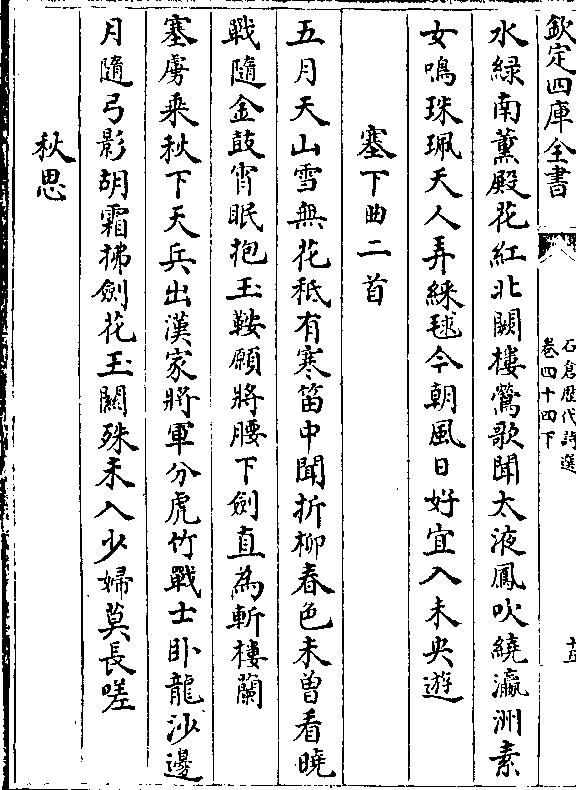 欽定四庫全書
石倉歴代詩選
卷四十四下
水緑南薫殿花紅北闕樓鶯歌聞太液鳳吹繞瀛洲素
女鳴珠珮天人弄綵毬今朝風日好宜入未央遊
塞下曲二首
五月天山雪無花秖有寒笛中聞折柳春色未曽看曉
戰隨金鼓宵眠抱玉鞍願將腰下劍直為斬樓蘭
塞虜乗秋下天兵出漢家將軍分虎竹戰士卧龍沙邊
月隨弓影胡霜拂劍花玉闗殊未入少婦莫長嗟
秋思